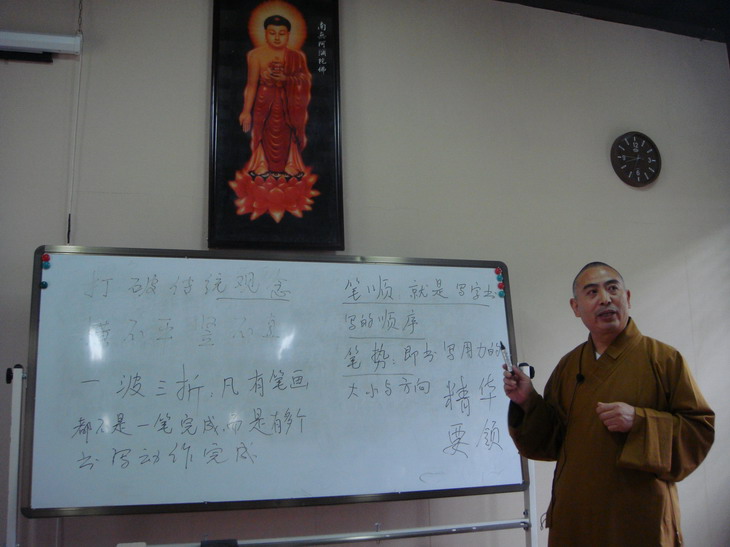 南无阿弥陀佛
打破传统观念
横不平竖不直
一波三折,凡有笔画
都不是一笔完成,而是有多个
书写动作完成
笔顺 就是写字书
写的顺序
笔势,即书写用力的
大小与方向
精华
要领